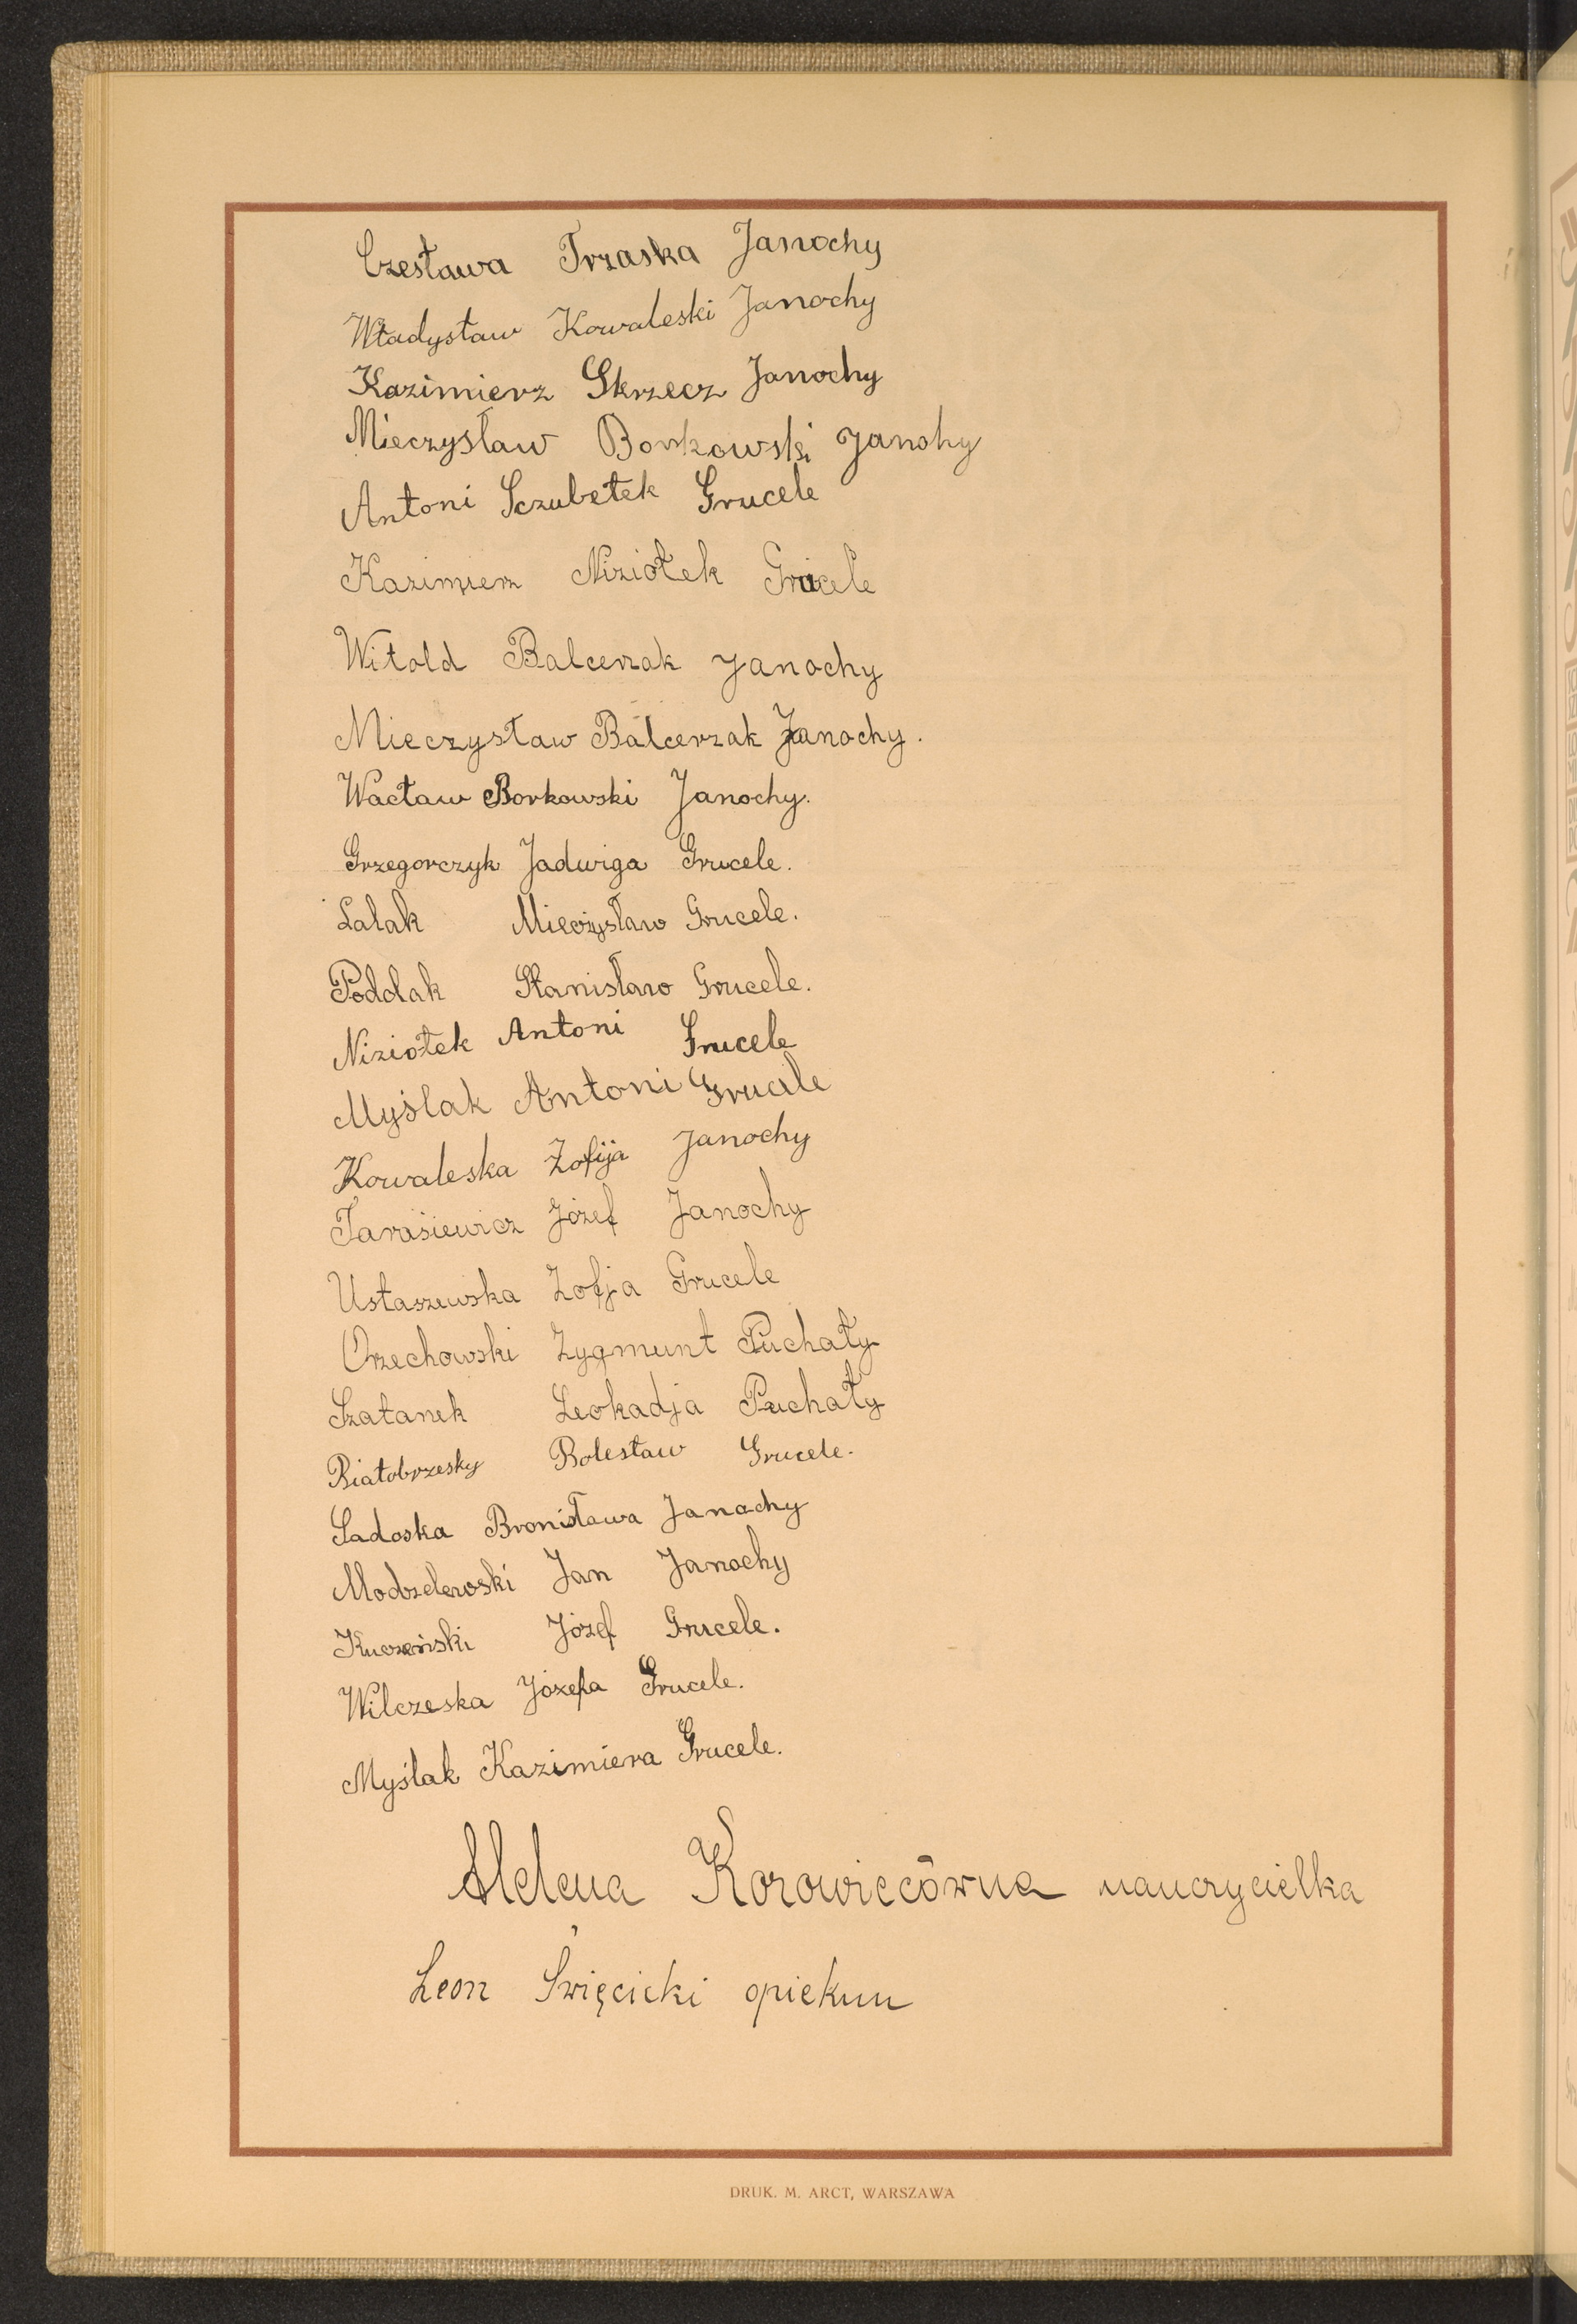 Czesława Trzaska Janochy
Władysław Kowaleski Janochy
Kazimierz Skrzecz Janochy
Mieczysław Borkowski Janohy
Antoni Sczubełek Grucele
Kazimierz Niziołek Grucele
Witold Balcerzak Janochy
Mieczysław Balcerzak Janochy.
Wacław Borkowski Janochy.
Grzegorczyk Jadwiga Grucele.
Lalak Mieczysław Grucele.
Poddak Stanisław Grucele.
Niziołek Antoni Grucele
Myślak Antoni Grucele
Kowaleska Zofija Janochy
Tarasiewicz Józef Janochy
Ustaszewska Zofja Grucele
Orzechowski Zygmunt Puchały
Szatanek Leokadja Puchały
Białobrzesky Bolesław Grucele.
Sadoska Bronisława Janochy
Modzelewski Jan Janochy
Kuczeński Józef Grucele.
Wilczeska Józefa Grucele.
Myślak Kazimiera Grucele.
Helena Korowiecówna nauczycielka
Leon Święcicki opiekun
DRUK. M. ARCT, WARSZAWA